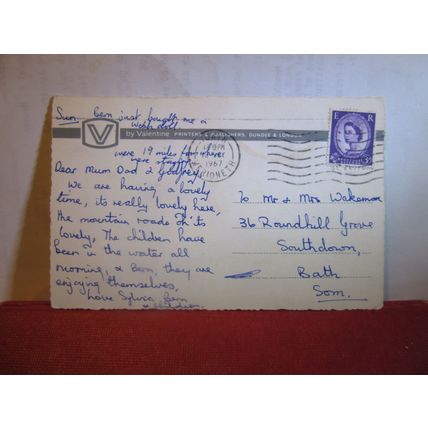 Sun. Bern just bought me a
Welsh doll
by Valentine PRINTERS & PUBLISHERS, DUNDEE & LONDON
were 19 miles from where
were staying
Dear Mum Dad &
We are having a lovely
time, its really lovely here,
the mountain roads & its
lovely, The children have
been in the water all
morning, & Bern, they are
enjoying themselves,
Love Sylvia, Bern
& children.
PM
1967
MERIONETH
E R
POSTAGE REVENUE
3D
To Mr & Mrs Wakeman
36 Roundhill Grove
Southdown,
Bath
Som.